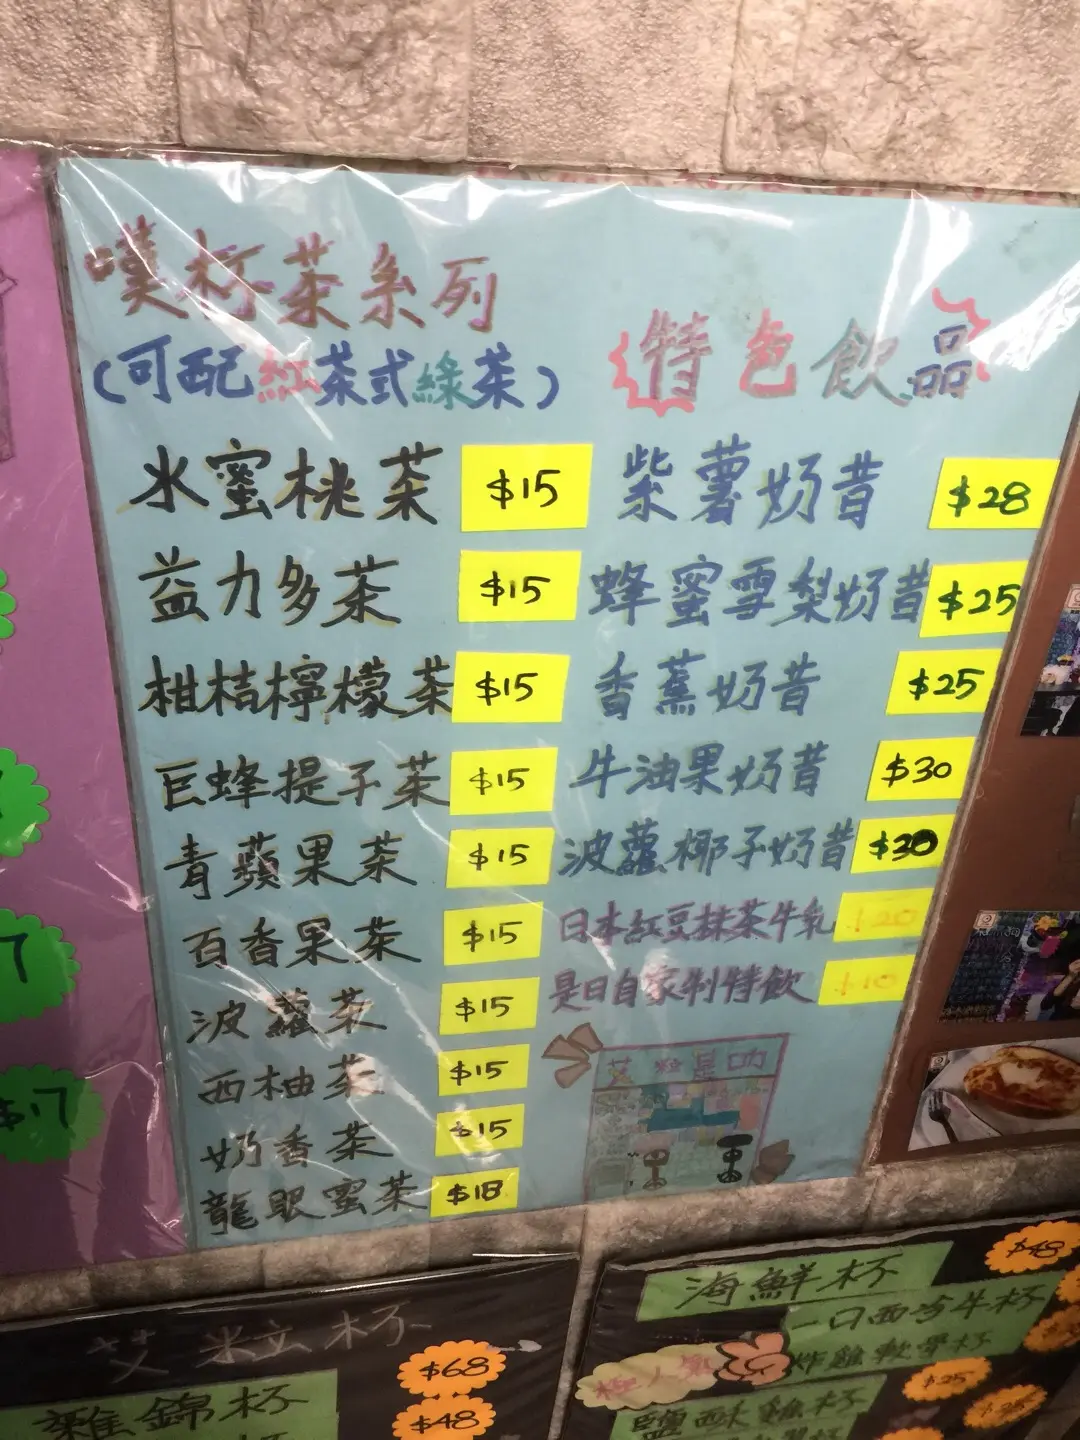 嘆杯茶系列
(可配紅茶式綠茶)
水蜜桃茶 $15
益力多茶 $15
柑桔檸檬茶 $15
巨蜂提子茶 $15
青蘋果茶 $15
百香果茶 $15
波蘿茶 $15
西柚茶 $15
奶香茶 $15
龍眼蜜茶 $18
特色飲品
紫薯奶昔 $28
蜂蜜雪梨奶昔 $25
香蕉奶昔 $25
牛油果奶昔 $30
波蘿椰子奶昔 $30
日本紅豆抹茶牛乳 $20
是日自家制特飲 $10
$17
艾粒杯
$68
雜錦杯
$48
海鮮杯
$48
一口西冷牛杯
極人氣
炸雞軟骨杯
$25
鹽酥雞杯